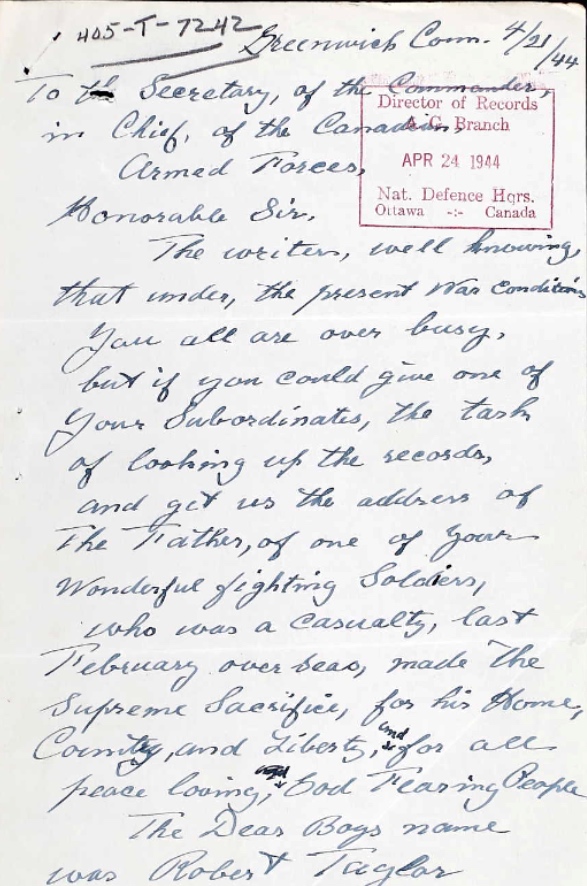 405-T-7242
Greenwich Conn. 4/21/44
To the Secretary, of the Commander,
in Chief, of the Canadian,
Armed Forces,
Director of Records
A.G. Branch
APR 24 1944
Nat. Defence Hqrs.
Ottawa -:- Canada
Honorable Sir.
The writer, well knowing,
that under, the present War Conditions
You all are over busy,
but if you could give one of
Your Subordinates, the task
of looking up the records,
and get us the address of
The Father, of one of your
Wonderful fighting Soldiers,
who was a Casualty, last
February over seas, made the
Supreme Sacrifice, for his Home,
Country, and Liberty, and for all
peace loving, God Fearing People
The Dear Boys name
was Robert Taylor